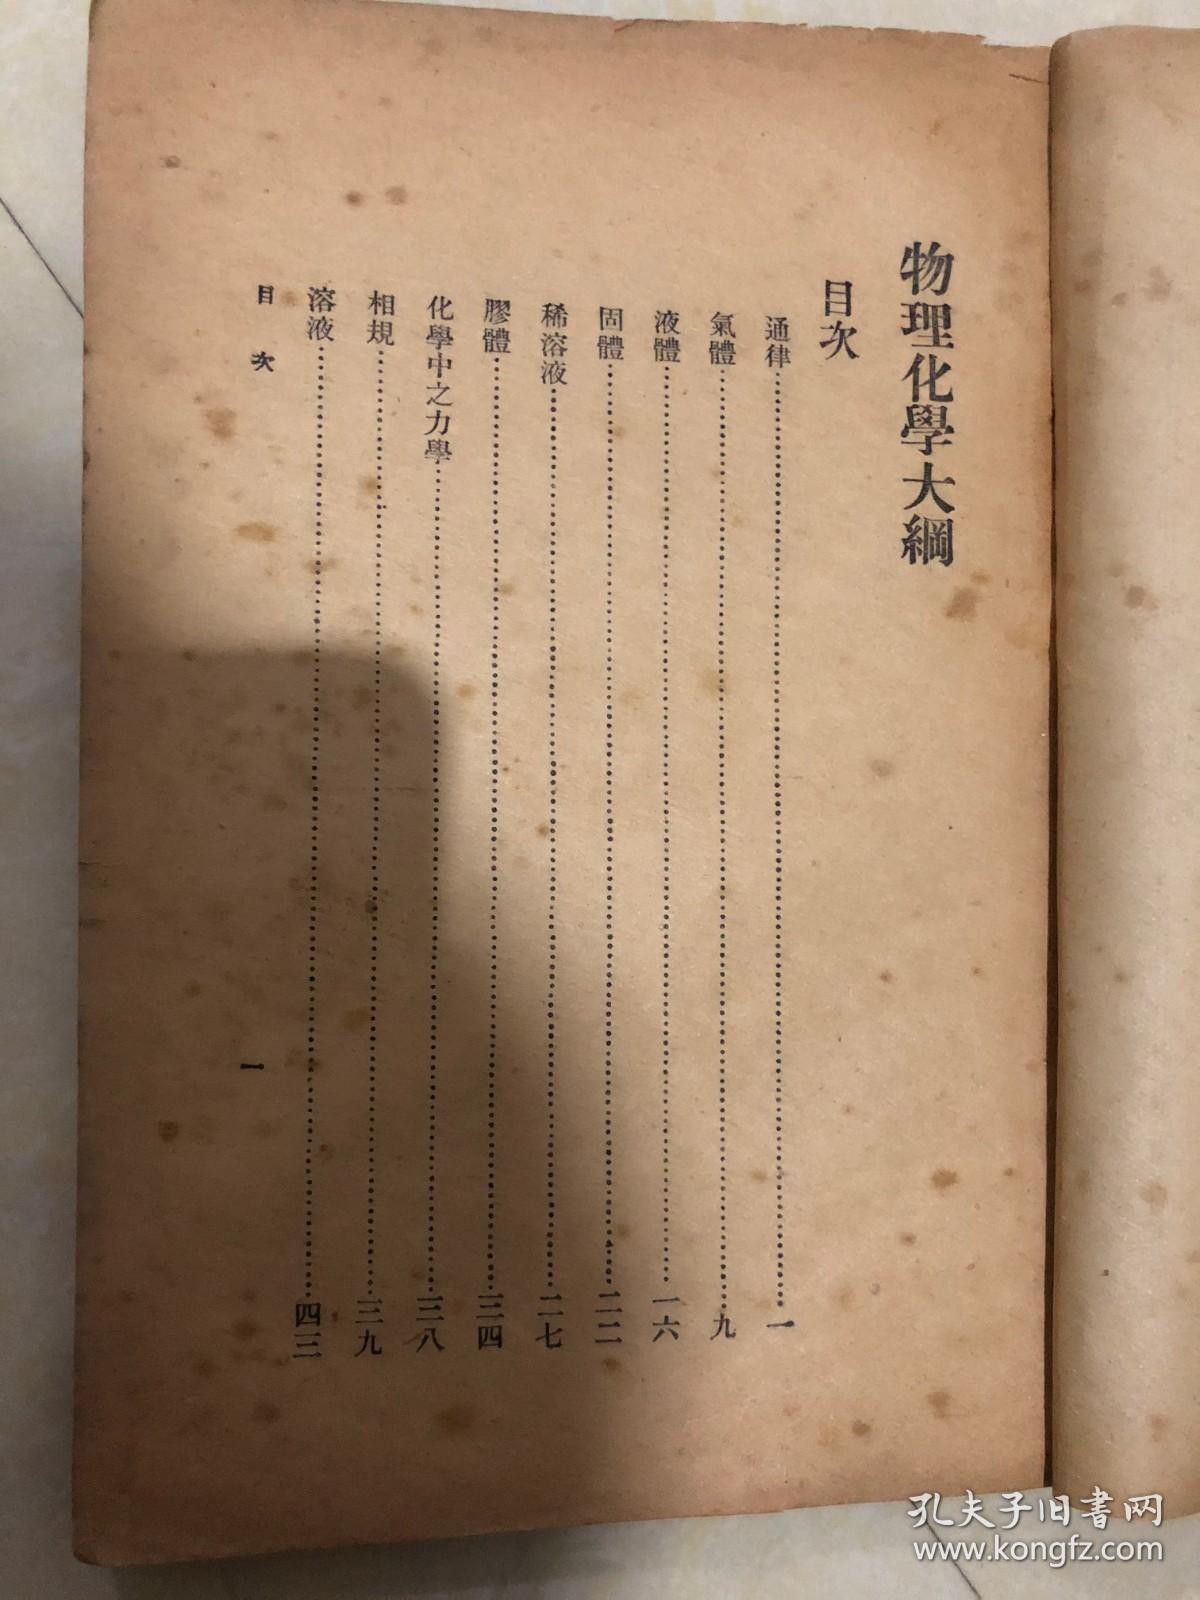 物理化學大綱
目次
通律……一
氣體……九
液體……一六
固體……二二
稀溶液……二七
膠體……三四
化學中之力學……三八
相規……三九
溶液……四三
目次
一
孔夫子旧书网
www.kongfz.com